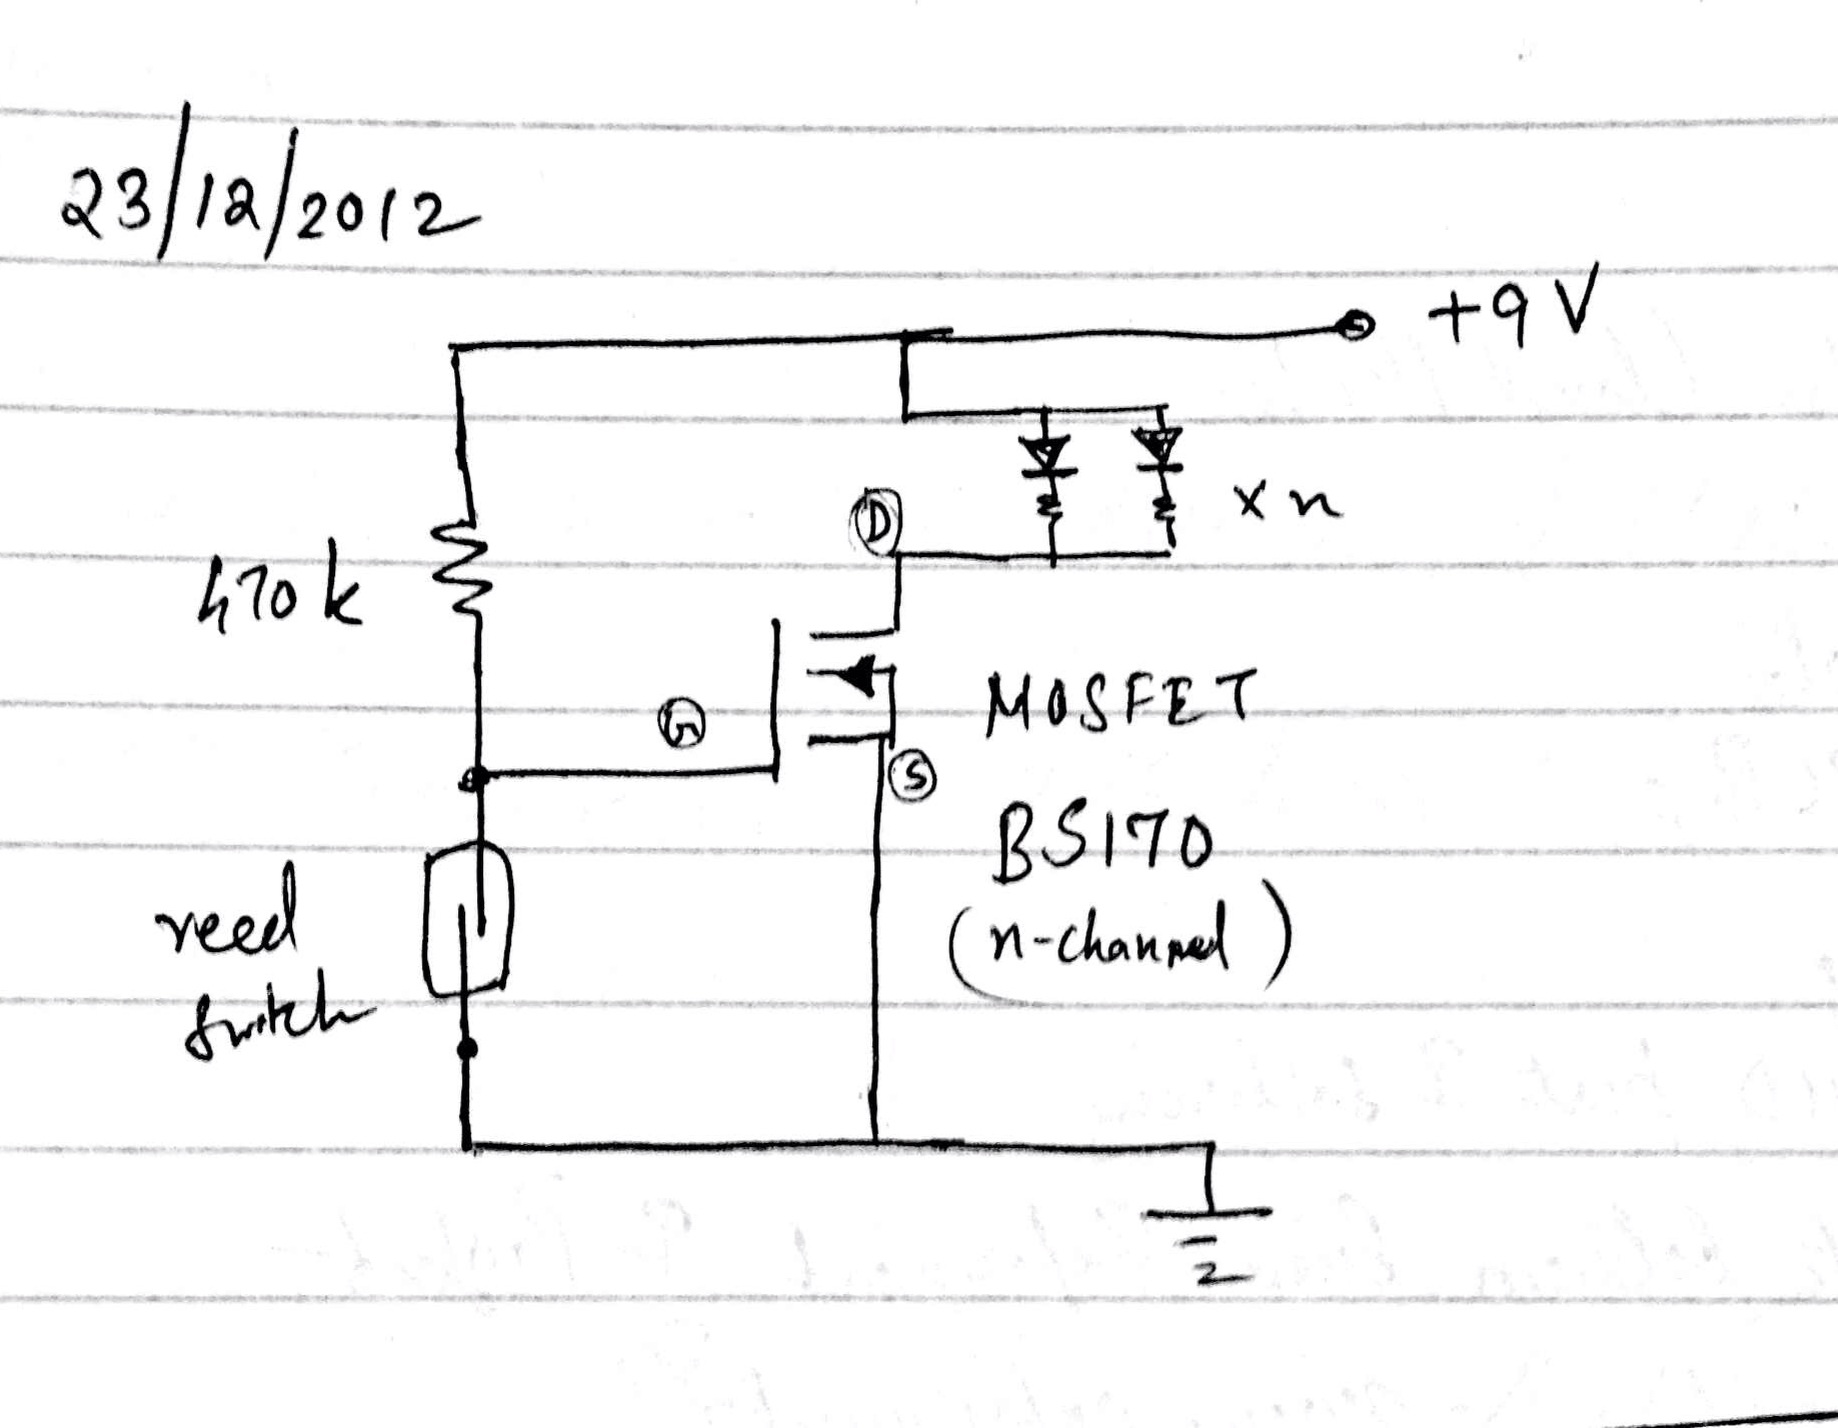 23/12/2012
+9 V
D
x n
470k
G
MOSFET
S
BS170
reed
switch
(n-channel)